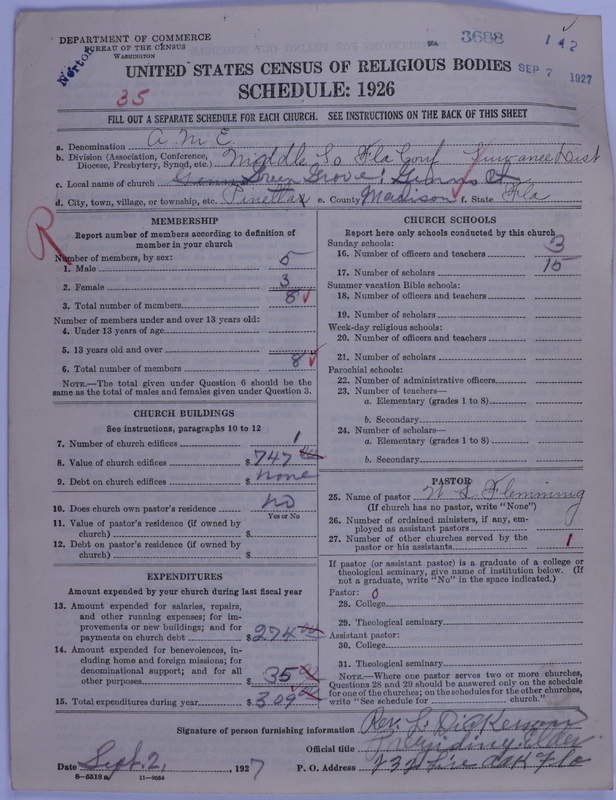 DEPARTMENT OF COMMERCE
BUREAU OF THE CENSUS
WASHINGTON
Norton
3688
142
SEP 7 1927
UNITED STATES CENSUS OF RELIGIOUS BODIES
SCHEDULE: 1926
35
FILL OUT A SEPARATE SCHEDULE FOR EACH CHURCH. SEE INSTRUCTIONS ON THE BACK OF THIS SHEET
a. Denomination A M E
b. Division (Association, Conference, Diocese, Presbytery, Synod, etc.) Middle So Fla Conf Dist
c. Local name of church Green Grove
d. City, town, village, or township, etc. Pinetta e. County Madison f. State Fla
R
MEMBERSHIP
Report number of members according to definition of member in your church
Number of members, by sex:
1. Male 5
2. Female 3
3. Total number of members 8
Number of members under and over 13 years old:
4. Under 13 years of age
5. 13 years old and over
6. Total number of members 8
NOTE.—The total given under Question 6 should be the same as the total of males and females given under Question 3.
CHURCH BUILDINGS
See instructions, paragraphs 10 to 12
7. Number of church edifices 1
8. Value of church edifices $ 747 00
9. Debt on church edifices $ none
10. Does church own pastor's residence no
Yes or No
11. Value of pastor's residence (if owned by church) $
12. Debt on pastor's residence (if owned by church) $
EXPENDITURES
Amount expended by your church during last fiscal year
13. Amount expended for salaries, repairs, and other running expenses; for improvements or new buildings; and for payments on church debt $ 274 00
14. Amount expended for benevolences, including home and foreign missions; for denominational support; and for all other purposes $ 35 00
15. Total expenditures during year $ 309
CHURCH SCHOOLS
Report here only schools conducted by this church
Sunday schools:
16. Number of officers and teachers 3
17. Number of scholars 15
Summer vacation Bible schools:
18. Number of officers and teachers
19. Number of scholars
Week-day religious schools:
20. Number of officers and teachers
21. Number of scholars
Parochial schools:
22. Number of administrative officers
23. Number of teachers—
a. Elementary (grades 1 to 8)
b. Secondary
24. Number of scholars—
a. Elementary (grades 1 to 8)
b. Secondary
PASTOR
25. Name of pastor Flemming
(If church has no pastor, write "None")
26. Number of ordained ministers, if any, employed as assistant pastors
27. Number of other churches served by the pastor or his assistants 1
If pastor (or assistant pastor) is a graduate of a college or theological seminary, give name of institution below. (If not a graduate, write "No" in the space indicated.)
Pastor: 0
28. College
29. Theological seminary
Assistant pastor:
30. College
31. Theological seminary
NOTE.—Where one pastor serves two or more churches, Questions 28 and 29 should be answered only on the schedule for one of the churches; on the schedules for the other churches, write "See schedule for church."
Signature of person furnishing information Rev. Dickerson
Official title Presiding Elder
Date Sept. 2, 1927 P. O. Address Live Oak Fla
8-5518a 11-9064